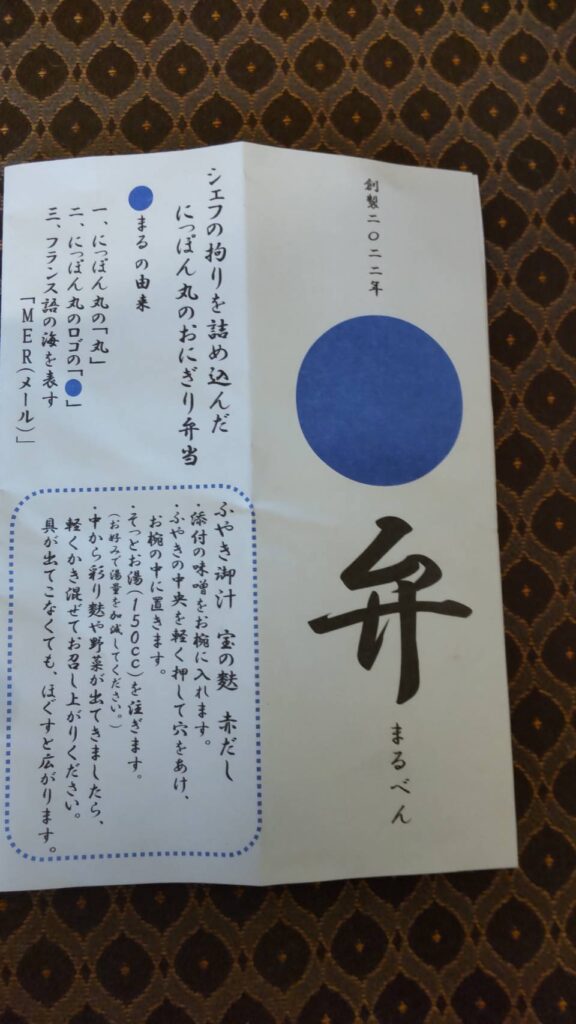 創製二〇二二年
弁
まるべん
シェフの拘りを詰め込んだ
にっぽん丸のおにぎり弁当
まるの由来
一、にっぽん丸の「丸」
二、にっぽん丸のロゴの「●」
三、フランス語の海を表す
「MER(メール)」
ふやき御汁 宝の麩 赤だし
・添付の味噌をお椀に入れます。
・ふやきの中央を軽く押して穴をあけ、
お椀の中に置きます。
・そっとお湯(150cc)を注ぎます。
(お好みで湯量を加減してください。)
・中から彩り麩や野菜が出てきましたら、
軽くかき混ぜてお召し上がりください。
具が出てこなくても、ほぐすと広がります。